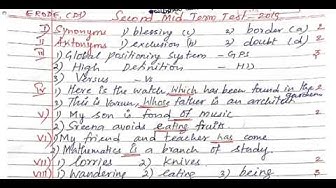 ERODE (Dt) Second Mid Term Test - 2019
I) Synonyms 1) blessing (c) 2) border (a) 2
II) Antonyms 1) exclusion (b) 2) doubt (d) 2
III) 1) Global positioning system - GPS 3
2) High Definition - HD
3) Versus - vs
IV) 1) Here is the watch which has been found in the garden. 2
2) This is Varun, whose father is an architect.
V) 1) My son is fond of music 2
2) Sreena avoids eating fruits
VI) 1) My friend and teacher has come 2
2) Mathematics is a branch of study.
VII) 1) lorries 2) knives 2
VIII) 1) Wandering 2) eating 3) being 3